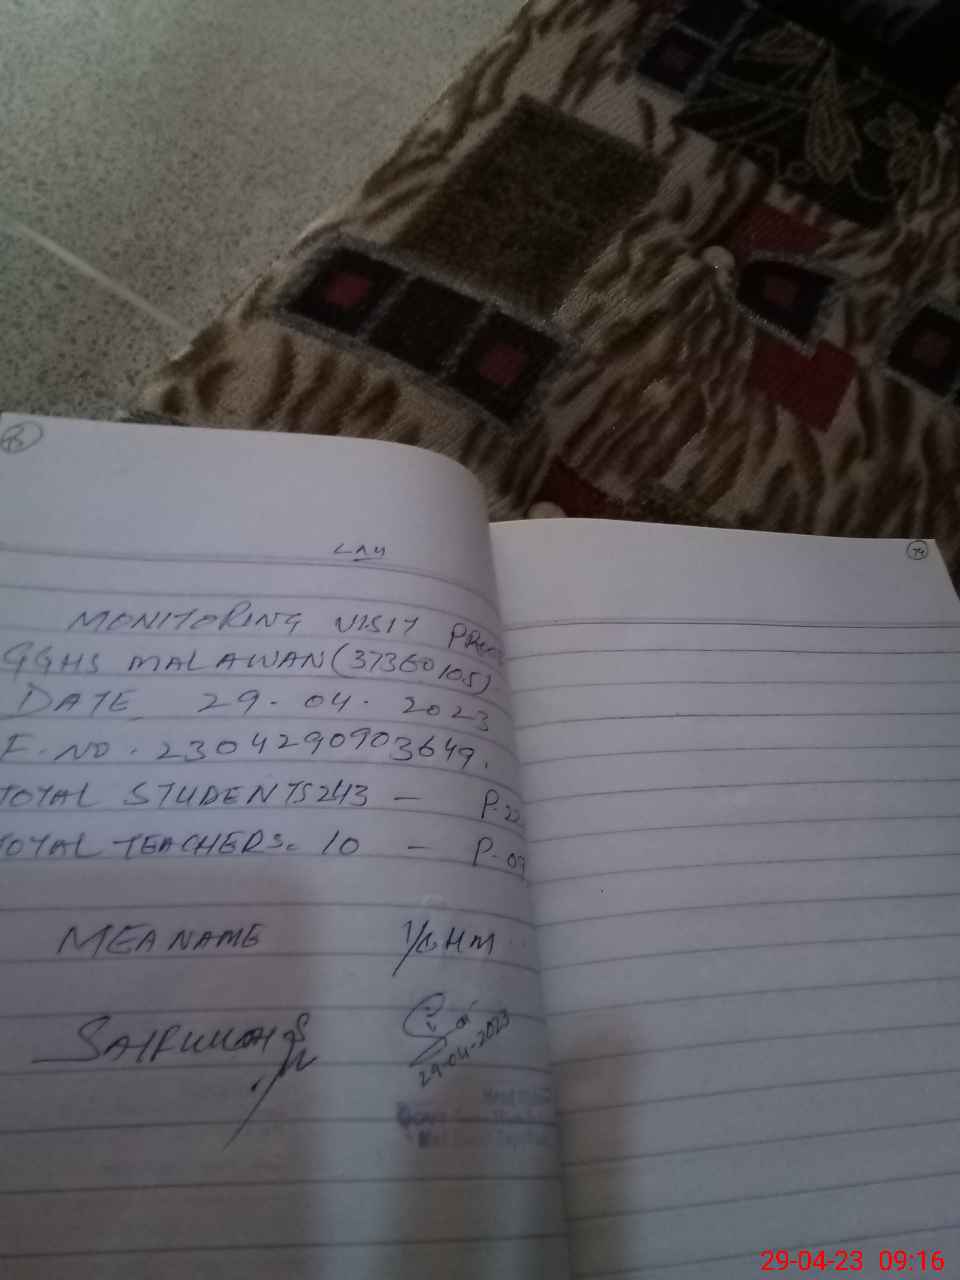 MONITORING VISIT
GGHS MALAWAN (37360105)
DATE 29-04-2023
F. NO. 2304290903649.
TOTAL STUDENTS 243 - P-22
TOTAL TEACHERS. 10 - P-09
MEA NAME I/C HM
29-04-2023
74
29-04-23 09:16